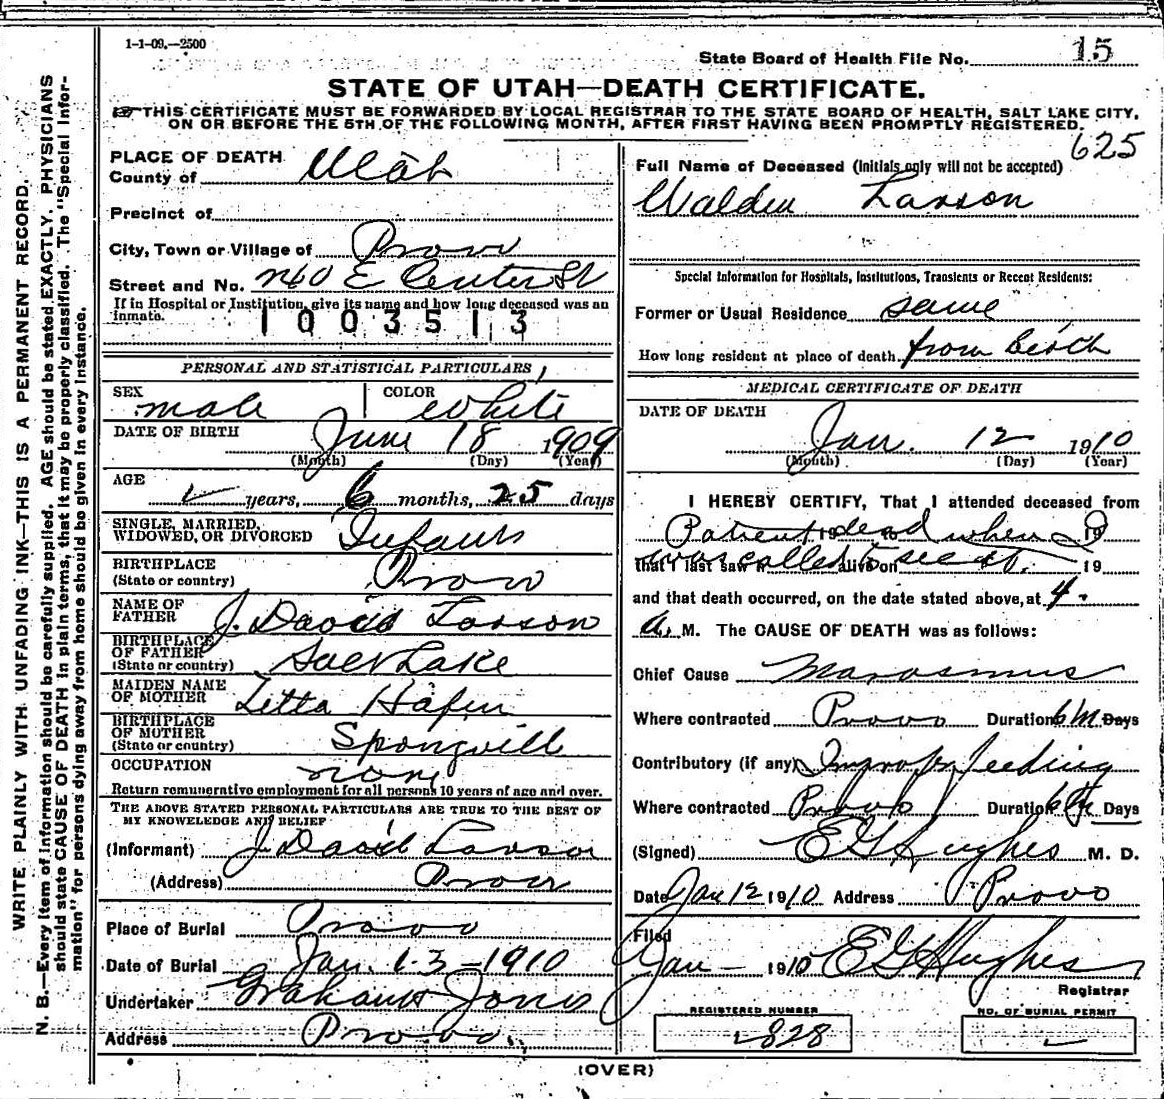 1-1-09.—2500
State Board of Health File No. 15
STATE OF UTAH—DEATH CERTIFICATE.
THIS CERTIFICATE MUST BE FORWARDED BY LOCAL REGISTRAR TO THE STATE BOARD OF HEALTH, SALT LAKE CITY,
ON OR BEFORE THE 5TH OF THE FOLLOWING MONTH, AFTER FIRST HAVING BEEN PROMPTLY REGISTERED.
625
WRITE PLAINLY WITH UNFADING INK—THIS IS A PERMANENT RECORD.
N. B.—Every item of information should be carefully supplied. AGE should be stated EXACTLY. PHYSICIANS
should state CAUSE OF DEATH in plain terms, that it may be properly classified. The "Special Infor-
mation" for persons dying away from home should be given in every instance.
PLACE OF DEATH
County of Utah
Precinct of
City, Town or Village of Provo
Street and No. 760 E Center St
If in Hospital or Institution, give its name and how long deceased was an
inmate.
1003513
PERSONAL AND STATISTICAL PARTICULARS
SEX male COLOR White
DATE OF BIRTH June 18 1909
(Month) (Day) (Year)
AGE years, 6 months, 25 days
SINGLE, MARRIED,
WIDOWED, OR DIVORCED Infant
BIRTHPLACE
(State or country) Provo
NAME OF
FATHER J. David Larson
BIRTHPLACE
OF FATHER
(State or country) Salt Lake
MAIDEN NAME
OF MOTHER Letta Hafen
BIRTHPLACE
OF MOTHER
(State or country) Spongvill
OCCUPATION none
Return remunerative employment for all persons 10 years of age and over.
THE ABOVE STATED PERSONAL PARTICULARS ARE TRUE TO THE BEST OF
MY KNOWLEDGE AND BELIEF
(Informant) J. David Larson
(Address) Provo
Place of Burial Provo
Date of Burial Jan. 13-1910
Undertaker Graham & Jones
Address Provo.
Full Name of Deceased (Initials only will not be accepted)
Walden Larson
Special Information for Hospitals, Institutions, Transients or Recent Residents:
Former or Usual Residence same
How long resident at place of death from birth
MEDICAL CERTIFICATE OF DEATH
DATE OF DEATH
Jan. 12 1910
(Month) (Day) (Year)
I HEREBY CERTIFY, That I attended deceased from
Patient dead when I 19
was called to see it. 19
that I last saw h alive on
and that death occurred, on the date stated above, at 4.
A. M. The CAUSE OF DEATH was as follows:
Chief Cause Marasmus
Where contracted Provo Duration 6 M Days
Contributory (if any) Improp feeding
Where contracted Provo Duration 6 M Days
(Signed) E G Hughes M. D.
Date Jan 12 1910 Address Provo
Filed
Jan — 1910 E G Hughes
Registrar
REGISTERED NUMBER
828
NO. OF BURIAL PERMIT
(OVER)